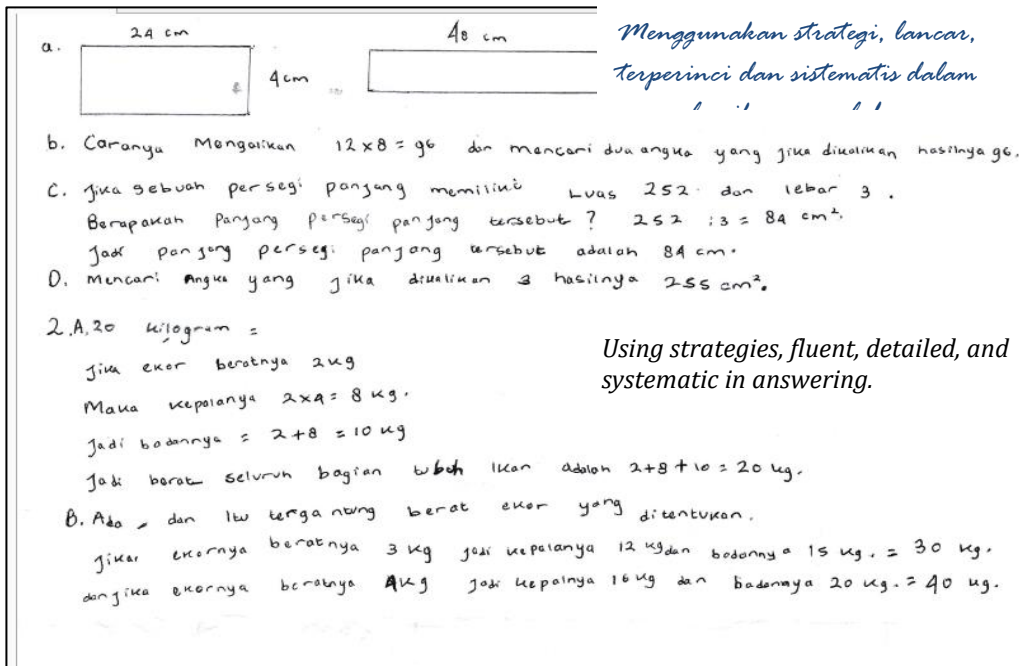 a.
24 cm
4 cm
48 cm
Menggunakan strategi, lancar,
terperinci dan sistematis dalam
b. Caranya Mengalikan 12 x 8 = 96 dan mencari dua angka yang jika dikalikan hasilnya 96.
C. Jika sebuah persegi panjang memiliki Luas 252 dan lebar 3.
Berapakah Panjang persegi panjang tersebut ? 252 : 3 = 84 cm².
Jadi panjang persegi panjang tersebut adalah 84 cm.
D. Mencari Angka yang jika dikalikan 3 hasilnya 255 cm².
2.A. 20 kilogram =
Jika ekor beratnya 2 kg
Maka kepalanya 2x4 = 8 kg.
Jadi badannya = 2+8 = 10 kg
Jadi berat seluruh bagian tubuh Ikan adalah 2+8+10 = 20 kg.
Using strategies, fluent, detailed, and
systematic in answering.
B. Ada, dan Itu tergantung berat ekor yang ditentukan.
Jika ekornya beratnya 3 kg jadi kepalanya 12 kg dan badannya 15 kg. = 30 kg.
dan jika ekornya beratnya 4 kg Jadi kepalnya 16 kg dan badannya 20 kg. = 40 kg.